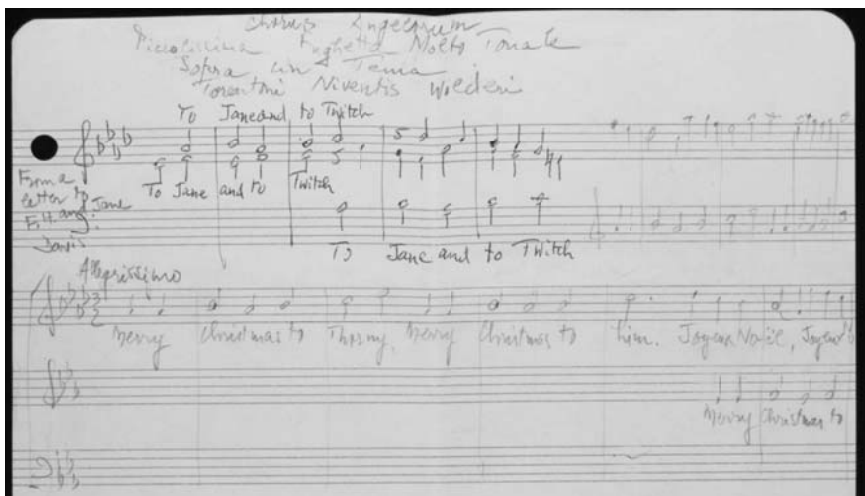 Chorus Angelorum
Piccolissima Fughetta Molto Tonale
Sopra un Tema
To Jane and to Twitch
From a
letter to
F. H. and Jane
To Jane and to Twitch
To Jane and to Twitch
Allegrissimo
Merry Christmas to Thorny, Merry Christmas to him. Joyeux Noël, Joyeux
Merry Christmas to